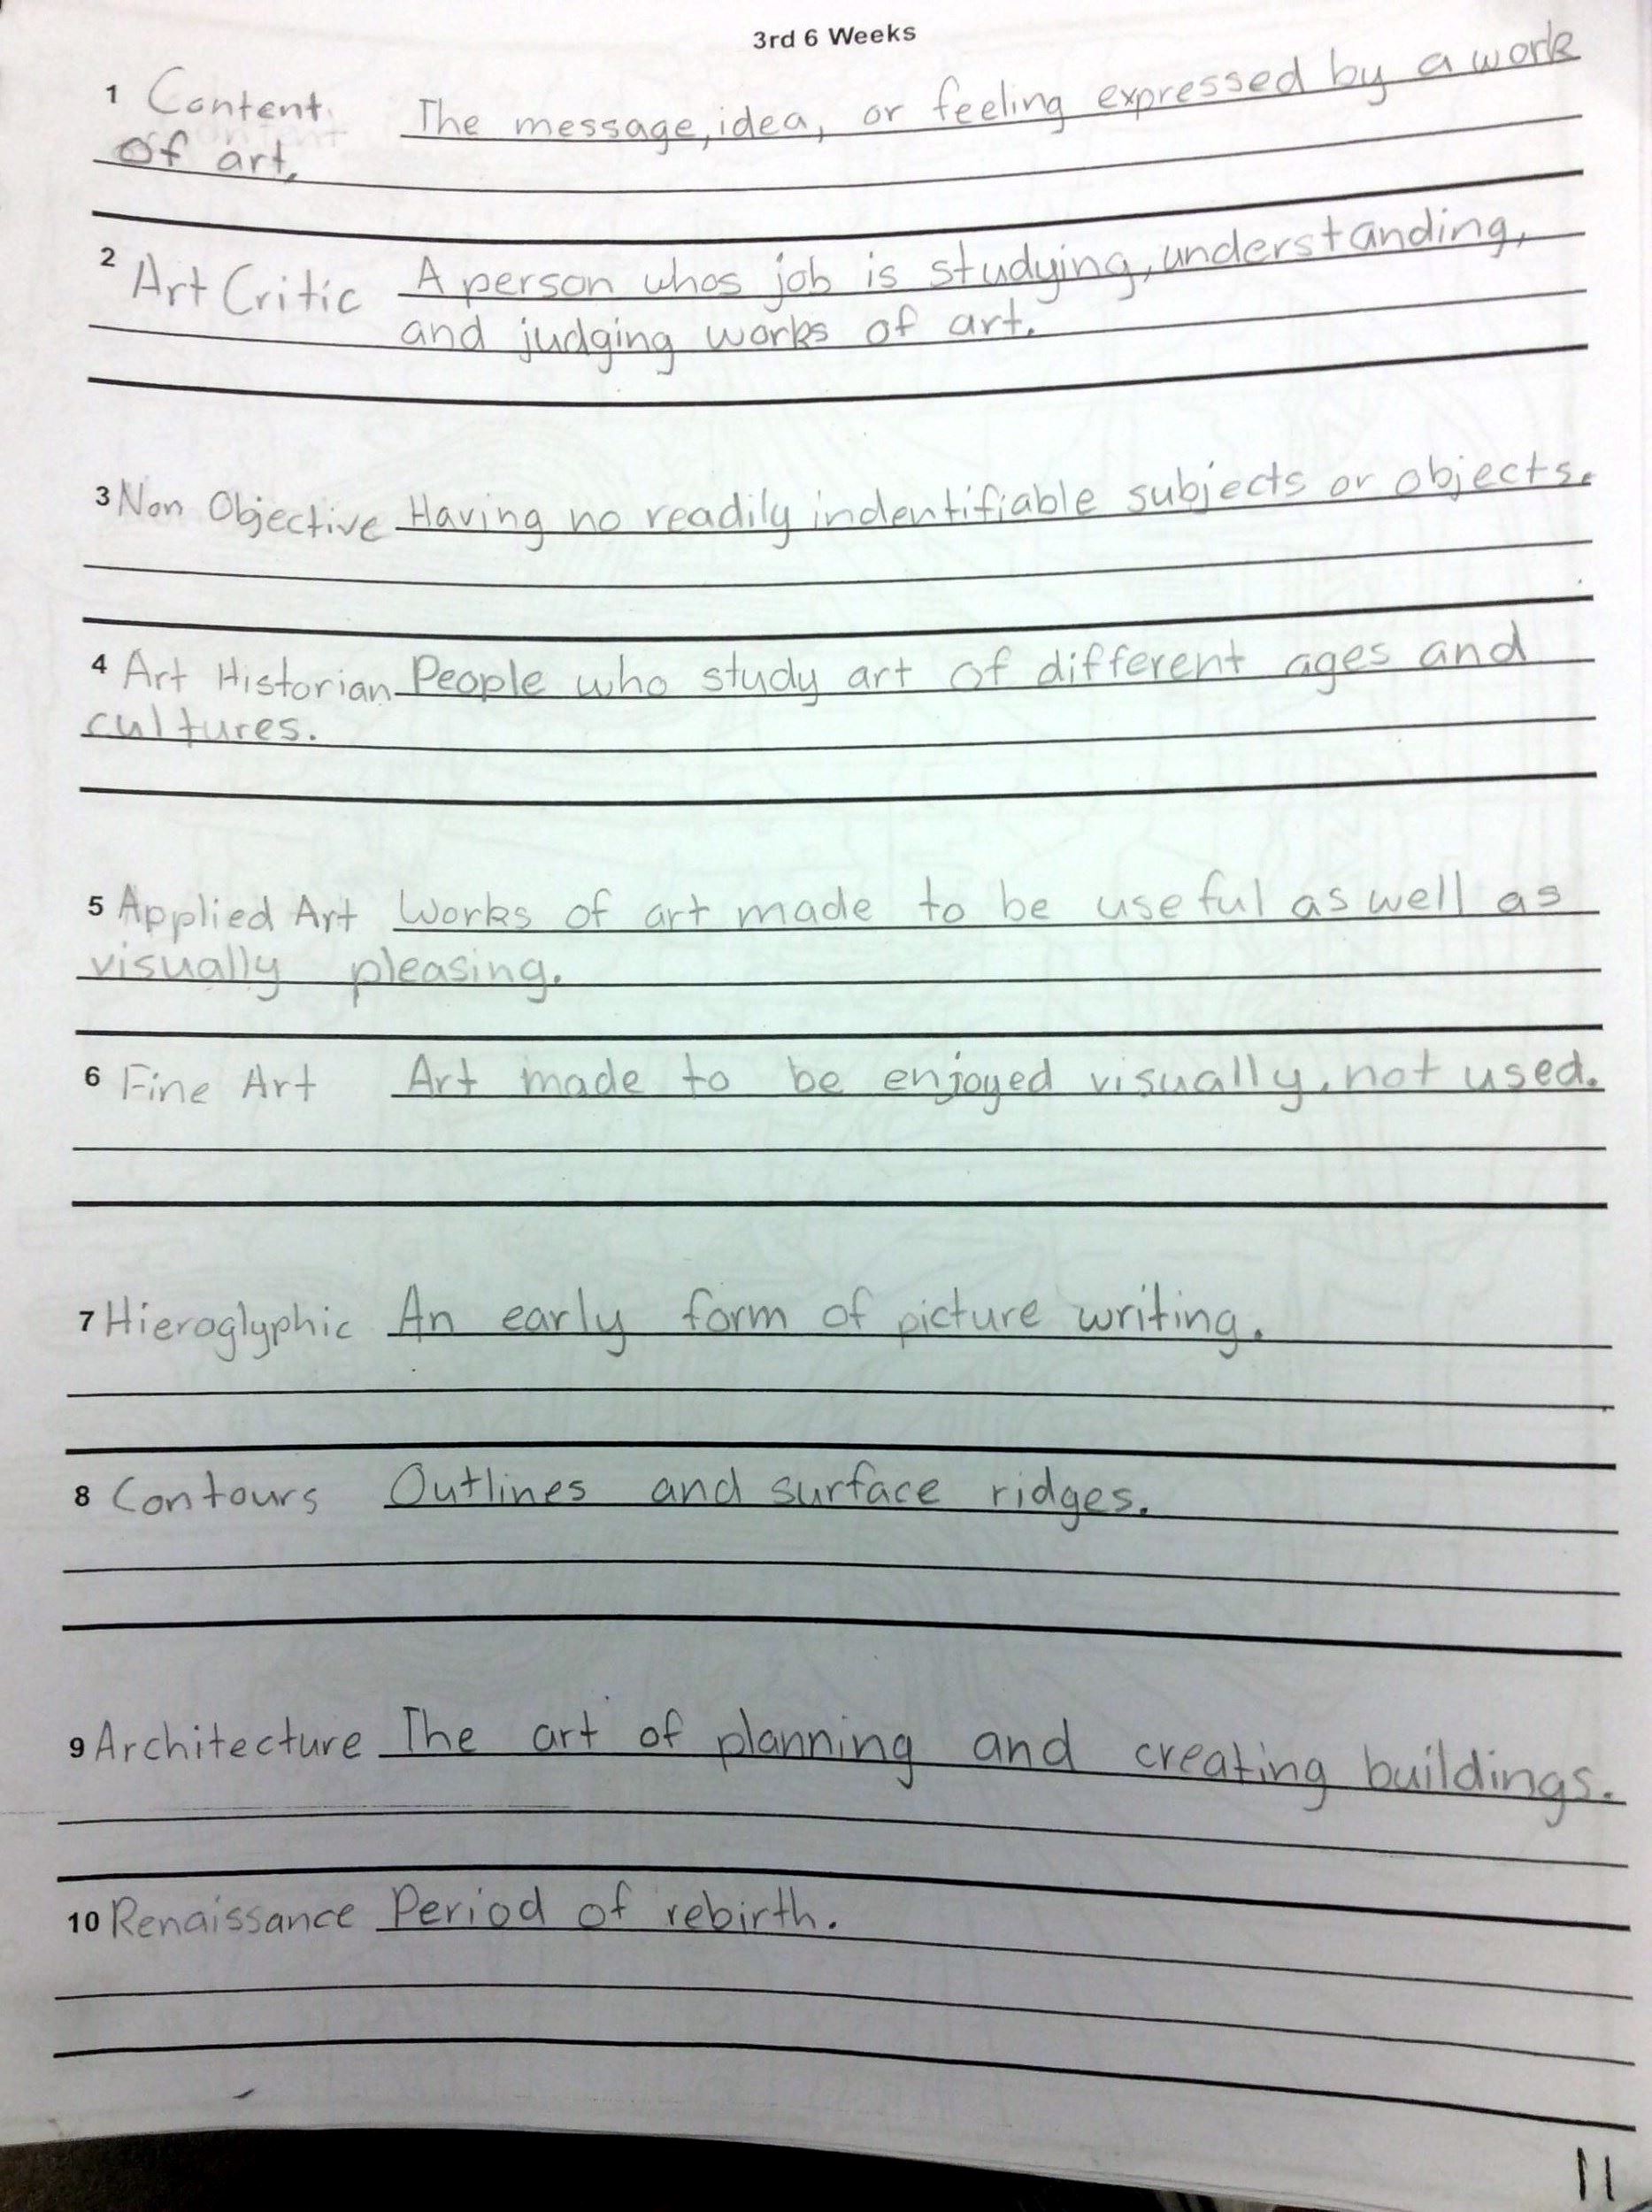 3rd 6 Weeks
1 Content The message, idea, or feeling expressed by a work
of art.
2 Art Critic A person whos job is studying, understanding,
and judging works of art.
3 Non Objective Having no readily indentifiable subjects or objects.
4 Art Historian People who study art of different ages and
cultures.
5 Applied Art Works of art made to be useful as well as
visually pleasing.
6 Fine Art Art made to be enjoyed visually, not used.
7 Hieroglyphic An early form of picture writing.
8 Contours Outlines and surface ridges.
9 Architecture The art of planning and creating buildings.
10 Renaissance Period of rebirth.
11